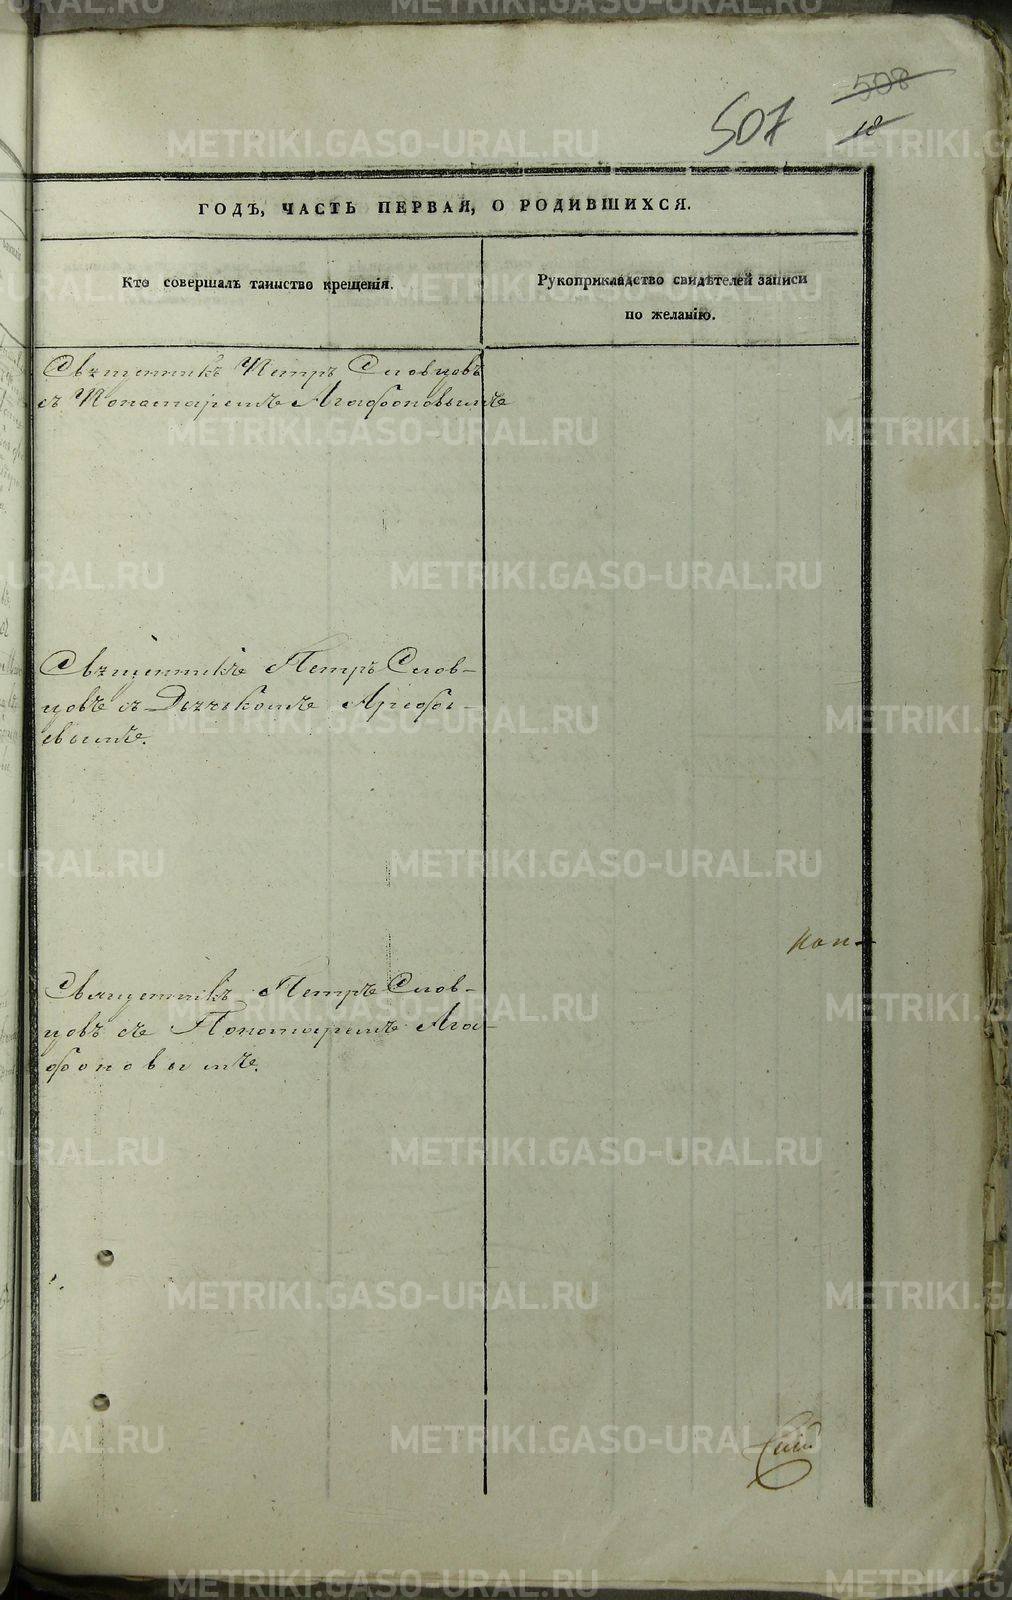 508
507
10
ГОДЪ, ЧАСТЬ ПЕРВАЯ, О РОДИВШИХСЯ.
Кто совершалъ таинство крещенія.
Рукоприкладство свидѣтелей записи
по желанію.
Священникъ Петръ Словцовъ
съ Пономаремъ Агафоновымъ
Священникъ Петръ Слов-
цовъ съ Дьячкомъ
евымъ.
Кон-
Священникъ Петръ Слов-
цовъ съ Пономаремъ Ага-
фоновымъ.
METRIKI.GASO-URAL.RU